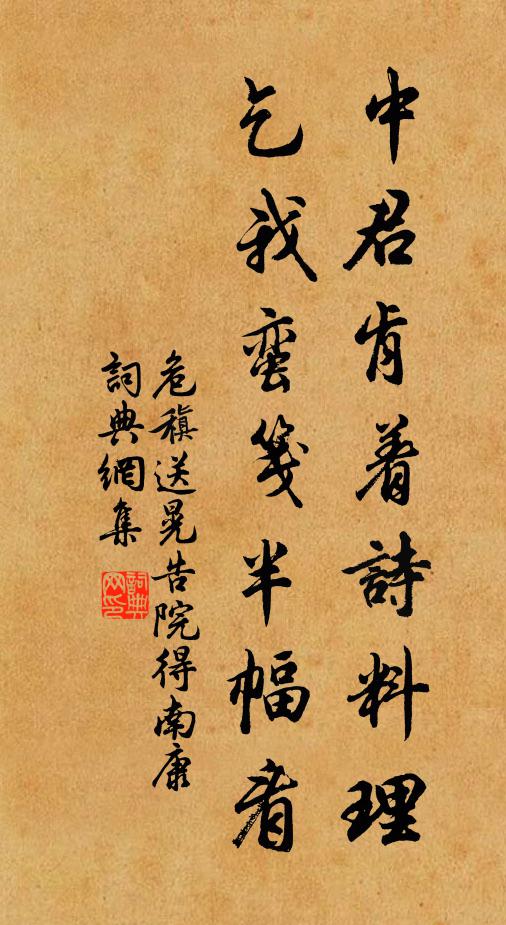 中君肯着詩料理
乞我蛮箋半幅看
危稹送晃告院得南康
詞典網集
詞典网印